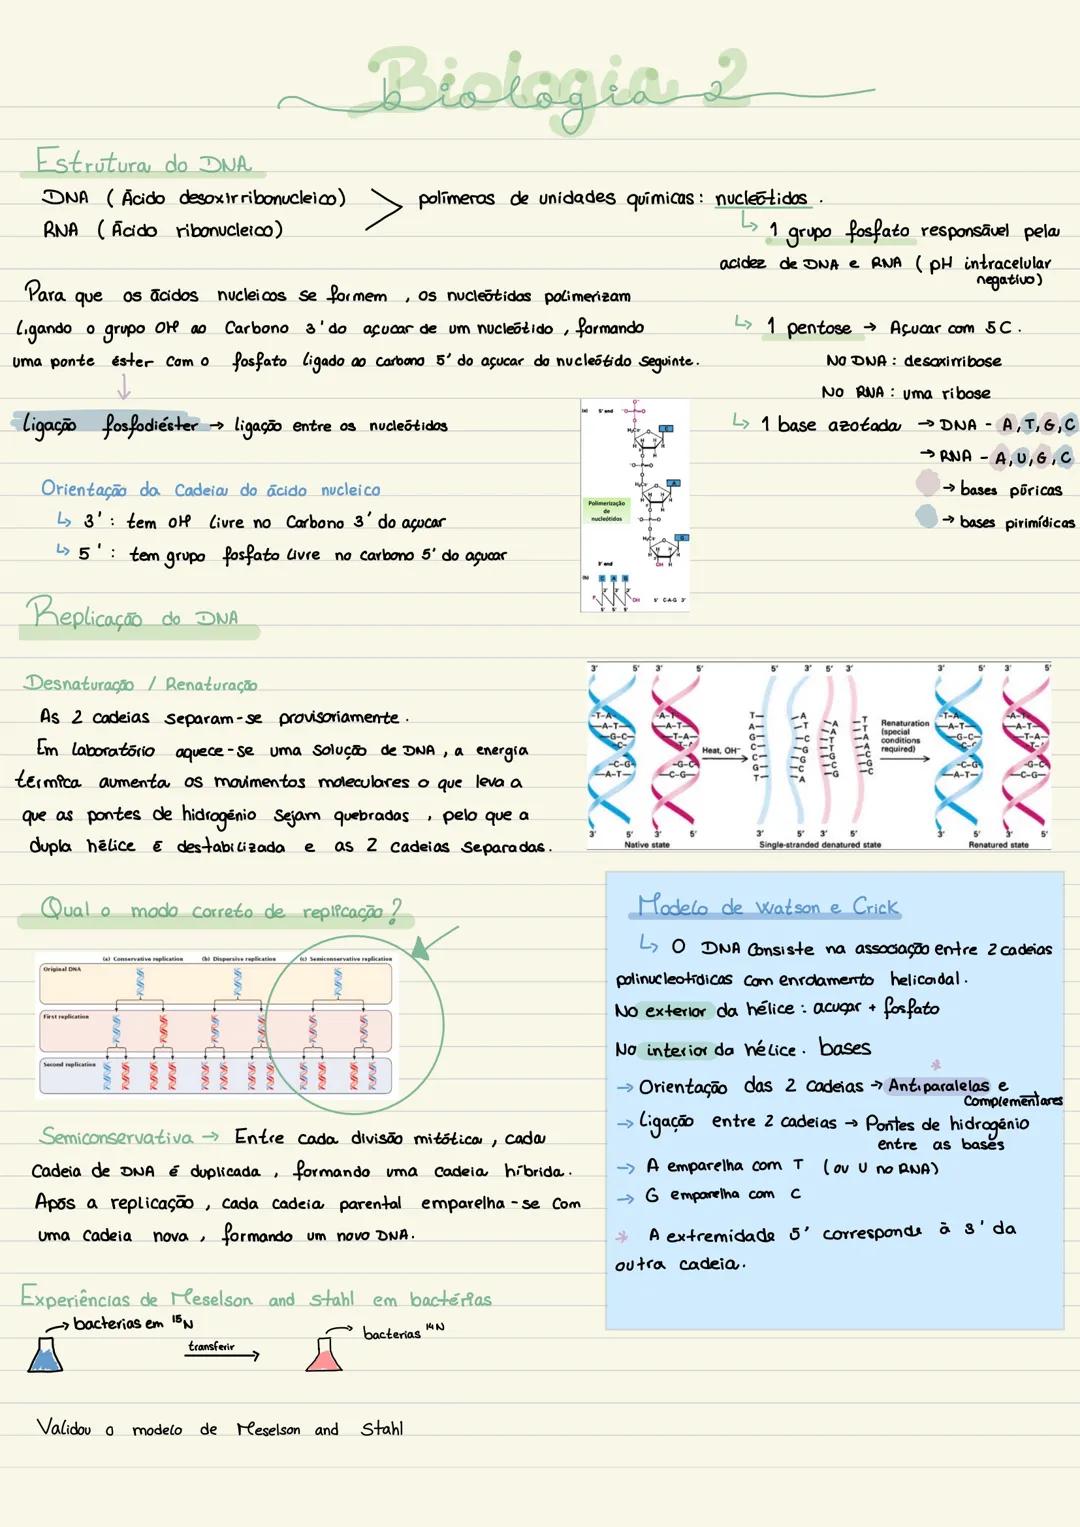 Biologia 2
biologia 2
Estrutura do DNA
DNA (Ácido desoxirribonucleico)
RNA (Ácido ribonucleico)
polímeros de unidades químicas: nucleótidos.
↳ 1 grupo fosfato responsável pela
acidez de DNA e RNA (pH intracelular
negativo)
Para que os ácidos nucleicos se formem, os nucleótidos polimerizam
ligando o grupo OH ao Carbono 3' do açucar de um nucleótido, formando
uma ponte éster com o fosfato ligado ao carbono 5' do açucar do nucleótido seguinte.
↳ 1 pentose → Açucar com 5C.
No DNA: desoxirribose
No RNA: uma ribose
↳ 1 base azotada → DNA - A,T,G,C
→ RNA - A,U,G,C
→ bases púricas
→ bases pirimídicas
ligação fosfodiéster → ligação entre os nucleótidos
Orientação da Cadeia do ácido nucleico
↳ 3': tem OH livre no Carbono 3' do açucar
↳ 5': tem grupo fosfato livre no carbono 5' do açucar
(a) 5' end
Polimerização
de
nucleótidos
3' end
(b) C A G
5' C-A-G 3'
Replicação do DNA
Desnaturação / Renaturação
As 2 cadeias separam-se provisoriamente.
Em laboratório aquece-se uma solução de DNA, a energia
térmica aumenta os movimentos moleculares o que leva a
que as pontes de hidrogénio sejam quebradas, pelo que a
dupla hélice é destabilizada e as 2 cadeias separadas.
3' 5' 3' 5' 5' 3' 5' 3' 3' 5' 3' 5'
Heat, OH⁻
Renaturation
(special
conditions
required)
3' 5' 3' 5' 3' 5' 3' 5' 3' 5' 3' 5'
Native state
Single-stranded denatured state
Renatured state
Qual o modo correto de replicação?
(a) Conservative replication (b) Dispersive replication (c) Semiconservative replication
Original DNA
First replication
Second replication
Semiconservativa → Entre cada divisão mitótica, cada
Cadeia de DNA é duplicada, formando uma cadeia híbrida.
Após a replicação, cada cadeia parental emparelha-se com
uma cadeia nova, formando um novo DNA.
Modelo de Watson e Crick
↳ O DNA consiste na associação entre 2 cadeias
polinucleotídicas com enrolamento helicoidal.
No exterior da hélice: acuçar + fosfato
No interior da hélice. bases
*
→ Orientação das 2 cadeias → Antiparalelas e
Complementares
→ Ligação entre 2 cadeias → Pontes de hidrogénio
entre as bases
→ A emparelha com T (ou U no RNA)
→ G emparelha com C
* A extremidade 5' corresponde à 3' da
outra cadeia.
Experiências de Meselson and Stahl em bactérias
→ bacterias em ¹⁵N
transferir
→ bacterias ¹⁴N
Validou o modelo de Meselson and Stahl